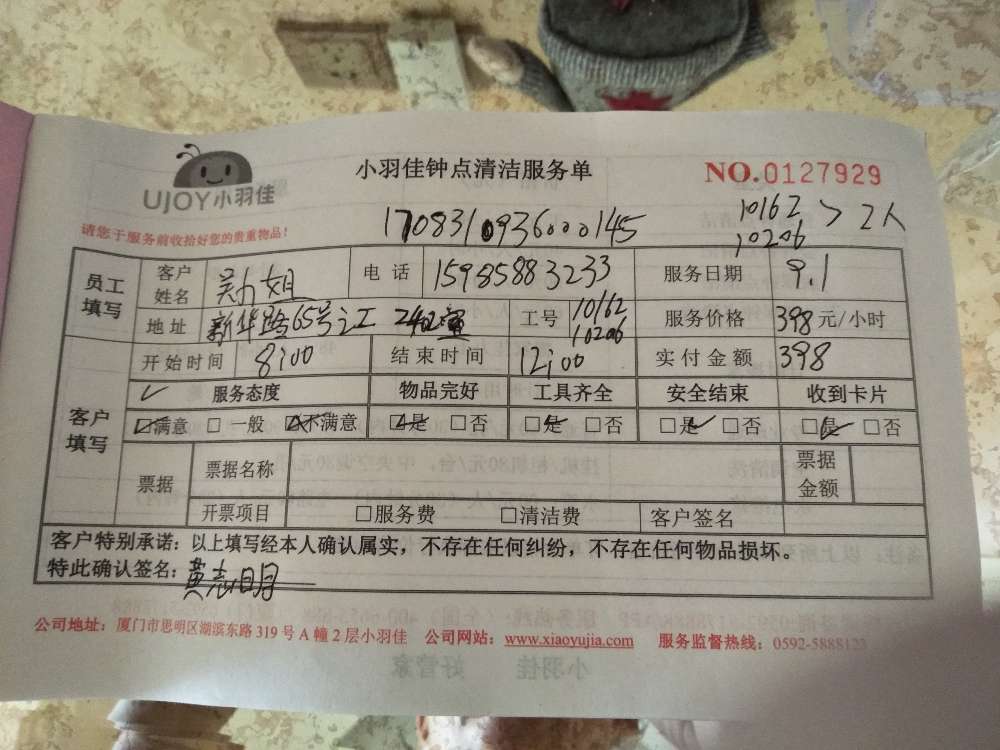 UJOY小羽佳
小羽佳钟点清洁服务单
NO.0127929
请您于服务前收拾好您的贵重物品!
1708310936000145
10162 > 2人
10206
员工填写 客户姓名 吴小姐 电话 15985883233 服务日期 9.1
地址 新华路65号之工 2402室 工号 10162 10206 服务价格 398元/小时
客户填写 开始时间 8:00 结束时间 12:00 实付金额 398
✓ 服务态度 物品完好 工具齐全 安全结束 收到卡片
☑满意 □一般 ☒不满意 ☑是 □否 ☑是 □否 ☑是 □否 ☑是 □否
票据 票据名称 票据金额
开票项目 □服务费 □清洁费 客户签名
客户特别承诺：以上填写经本人确认属实，不存在任何纠纷，不存在任何物品损坏。
特此确认签名：黄志明
公司地址：厦门市思明区湖滨东路319号A幢2层小羽佳 公司网站：www.xiaoyujia.com 服务监督热线：0592-5888123